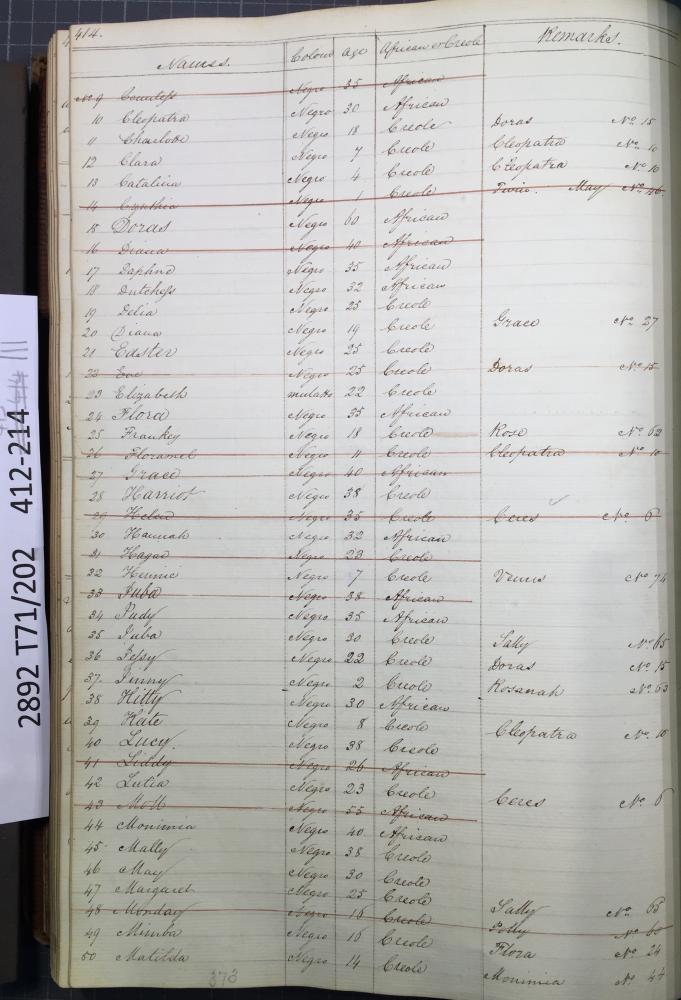 414.
Names. Colour Age African or Creole Remarks.
No 9 Countess Negro 35 African
10 Cleopatra Negro 30 African
11 Charlotte Negro 18 Creole Doras No 15
12 Clara Negro 7 Creole Cleopatra No 10
13 Catalina Negro 4 Creole Cleopatra No 10
14 Cynthia Negro 1 Creole Twin. May No 46
15 Doras Negro 60 African
16 Diana Negro 40 African
17 Daphne Negro 35 African
18 Dutchess Negro 32 African
19 Delia Negro 25 Creole
20 Diana Negro 19 Creole Grace No 27
21 Easter Negro 25 Creole
22 Eve Negro 25 Creole Doras No 15
23 Elizabeth mulatto 22 Creole
24 Flora Negro 35 African
25 Frankey Negro 18 Creole Rose No 62
26 Floramel Negro 4 Creole Cleopatra No 10
27 Grace Negro 40 African
28 Harriot Negro 38 Creole
29 Helen Negro 35 Creole Ceres No 6
30 Hannah Negro 32 African
31 Hagar Negro 23 Creole
32 Negro 7 Creole Venus No 74
33 Juba Negro 38 African
34 Judy Negro 35 African
35 Juba Negro 30 Creole Sally No 65
36 Jessy Negro 22 Creole Doras No 15
37 Jinny Negro 2 Creole Rosanah No 63
38 Kitty Negro 30 African
39 Kate Negro 8 Creole Cleopatra No 10
40 Lucy Negro 38 Creole
41 Liddy Negro 26 African
42 Lutia Negro 23 Creole Ceres No 6
43 Moll Negro 55 African
44 Monimia Negro 40 African
45 Mally Negro 38 Creole
46 May Negro 30 Creole
47 Margaret Negro 25 Creole Sally No 65
48 Monday Negro 16 Creole Polly No 60
49 Mimba Negro 16 Creole Flora No 24
50 Matilda Negro 14 Creole Monimia No 44
373
2892 T71/202 412-214